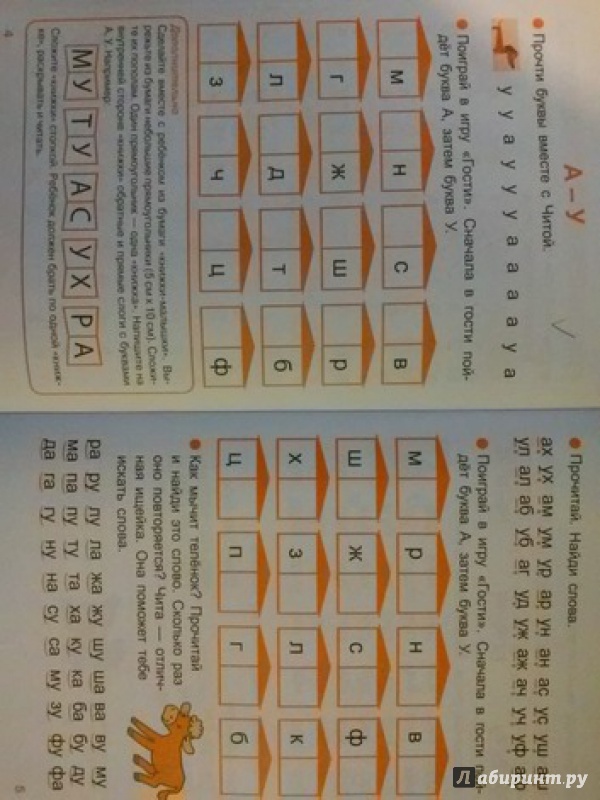 А – У
● Прочти буквы вместе с Читой.
у у а у у у а а а а у а
● Поиграй в игру «Гости». Сначала в гости пой-
дёт буква А, затем буква У.
м н с в
г ж ш р
л д т б
з ч ц ф
Дополнительно
Сделайте вместе с ребёнком из бумаги «книжки-малышки». Вы-
режьте из бумаги небольшие прямоугольники (5 см х 10 см). Сложи-
те их пополам. Один прямоугольник — одна «книжка». Напишите на
внутренней стороне «книжки» обратные и прямые слоги с буквами
А, У. Например:
МУ ТУ АС УХ РА
Сложите «книжки» стопкой. Ребёнок должен брать по одной «книж-
ке», раскрывать и читать.
4
● Прочитай. Найди слова.
ах ух ам ум ур ар ун ан ас ус уш аш
ул ал аб уб аг уд уж аж ач уч уф
● Поиграй в игру «Гости». Сначала в гости пой-
дёт буква А, затем буква У.
м р н в
ш ж с ф
х з л к
ц п г б
● Как мычит телёнок? Прочитай
и найди это слово. Сколько раз
оно повторяется? Чита — отлич-
ная ищейка. Она поможет тебе
искать слова.
ра ру лу ла жа жу шу ша ва ву му
ма па пу ту та ха ку ка ба бу ду
да га гу ну на су са му зу фу фа
5
Лабиринт.ру